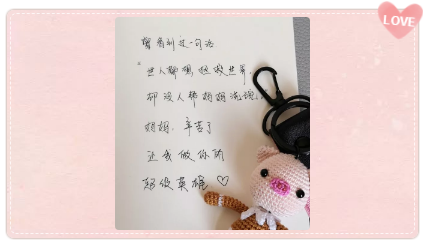 曾看到过一句话
世人都想拯救世界，
却没人帮妈妈洗碗。
妈妈，辛苦了
让我做你的
超级英雄♡
LOVE